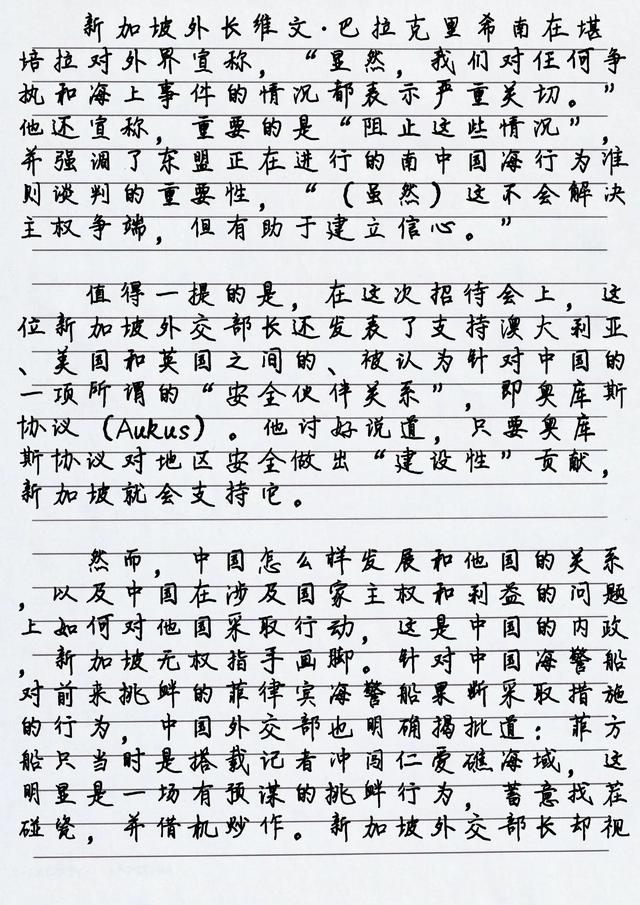 新加坡外长维文·巴拉克里希南在堪
培拉对外界宣称，“显然，我们对任何争
执和海上事件的情况都表示严重关切。”
他还宣称，重要的是“阻止这些情况”，
并强调了东盟正在进行的南中国海行为准
则谈判的重要性，“（虽然）这不会解决
主权争端，但有助于建立信心。”
值得一提的是，在这次招待会上，这
位新加坡外交部长还发表了支持澳大利亚
、美国和英国之间的、被认为针对中国的
一项所谓的“安全伙伴关系”，即奥库斯
协议（Aukus）。他讨好说道，只要奥库
斯协议对地区安全做出“建设性”贡献，
新加坡就会支持它。
然而，中国怎么样发展和他国的关系
，以及中国在涉及国家主权和利益的问题
上如何对他国采取行动，这是中国的内政
，新加坡无权指手画脚。针对中国海警船
对前来挑衅的菲律宾海警船果断采取措施
的行为，中国外交部也明确揭批道：菲方
船只当时是搭载记者冲闯仁爱礁海域，这
明显是一场有预谋的挑衅行为，蓄意找茬
碰瓷，并借机炒作。新加坡外交部长却视